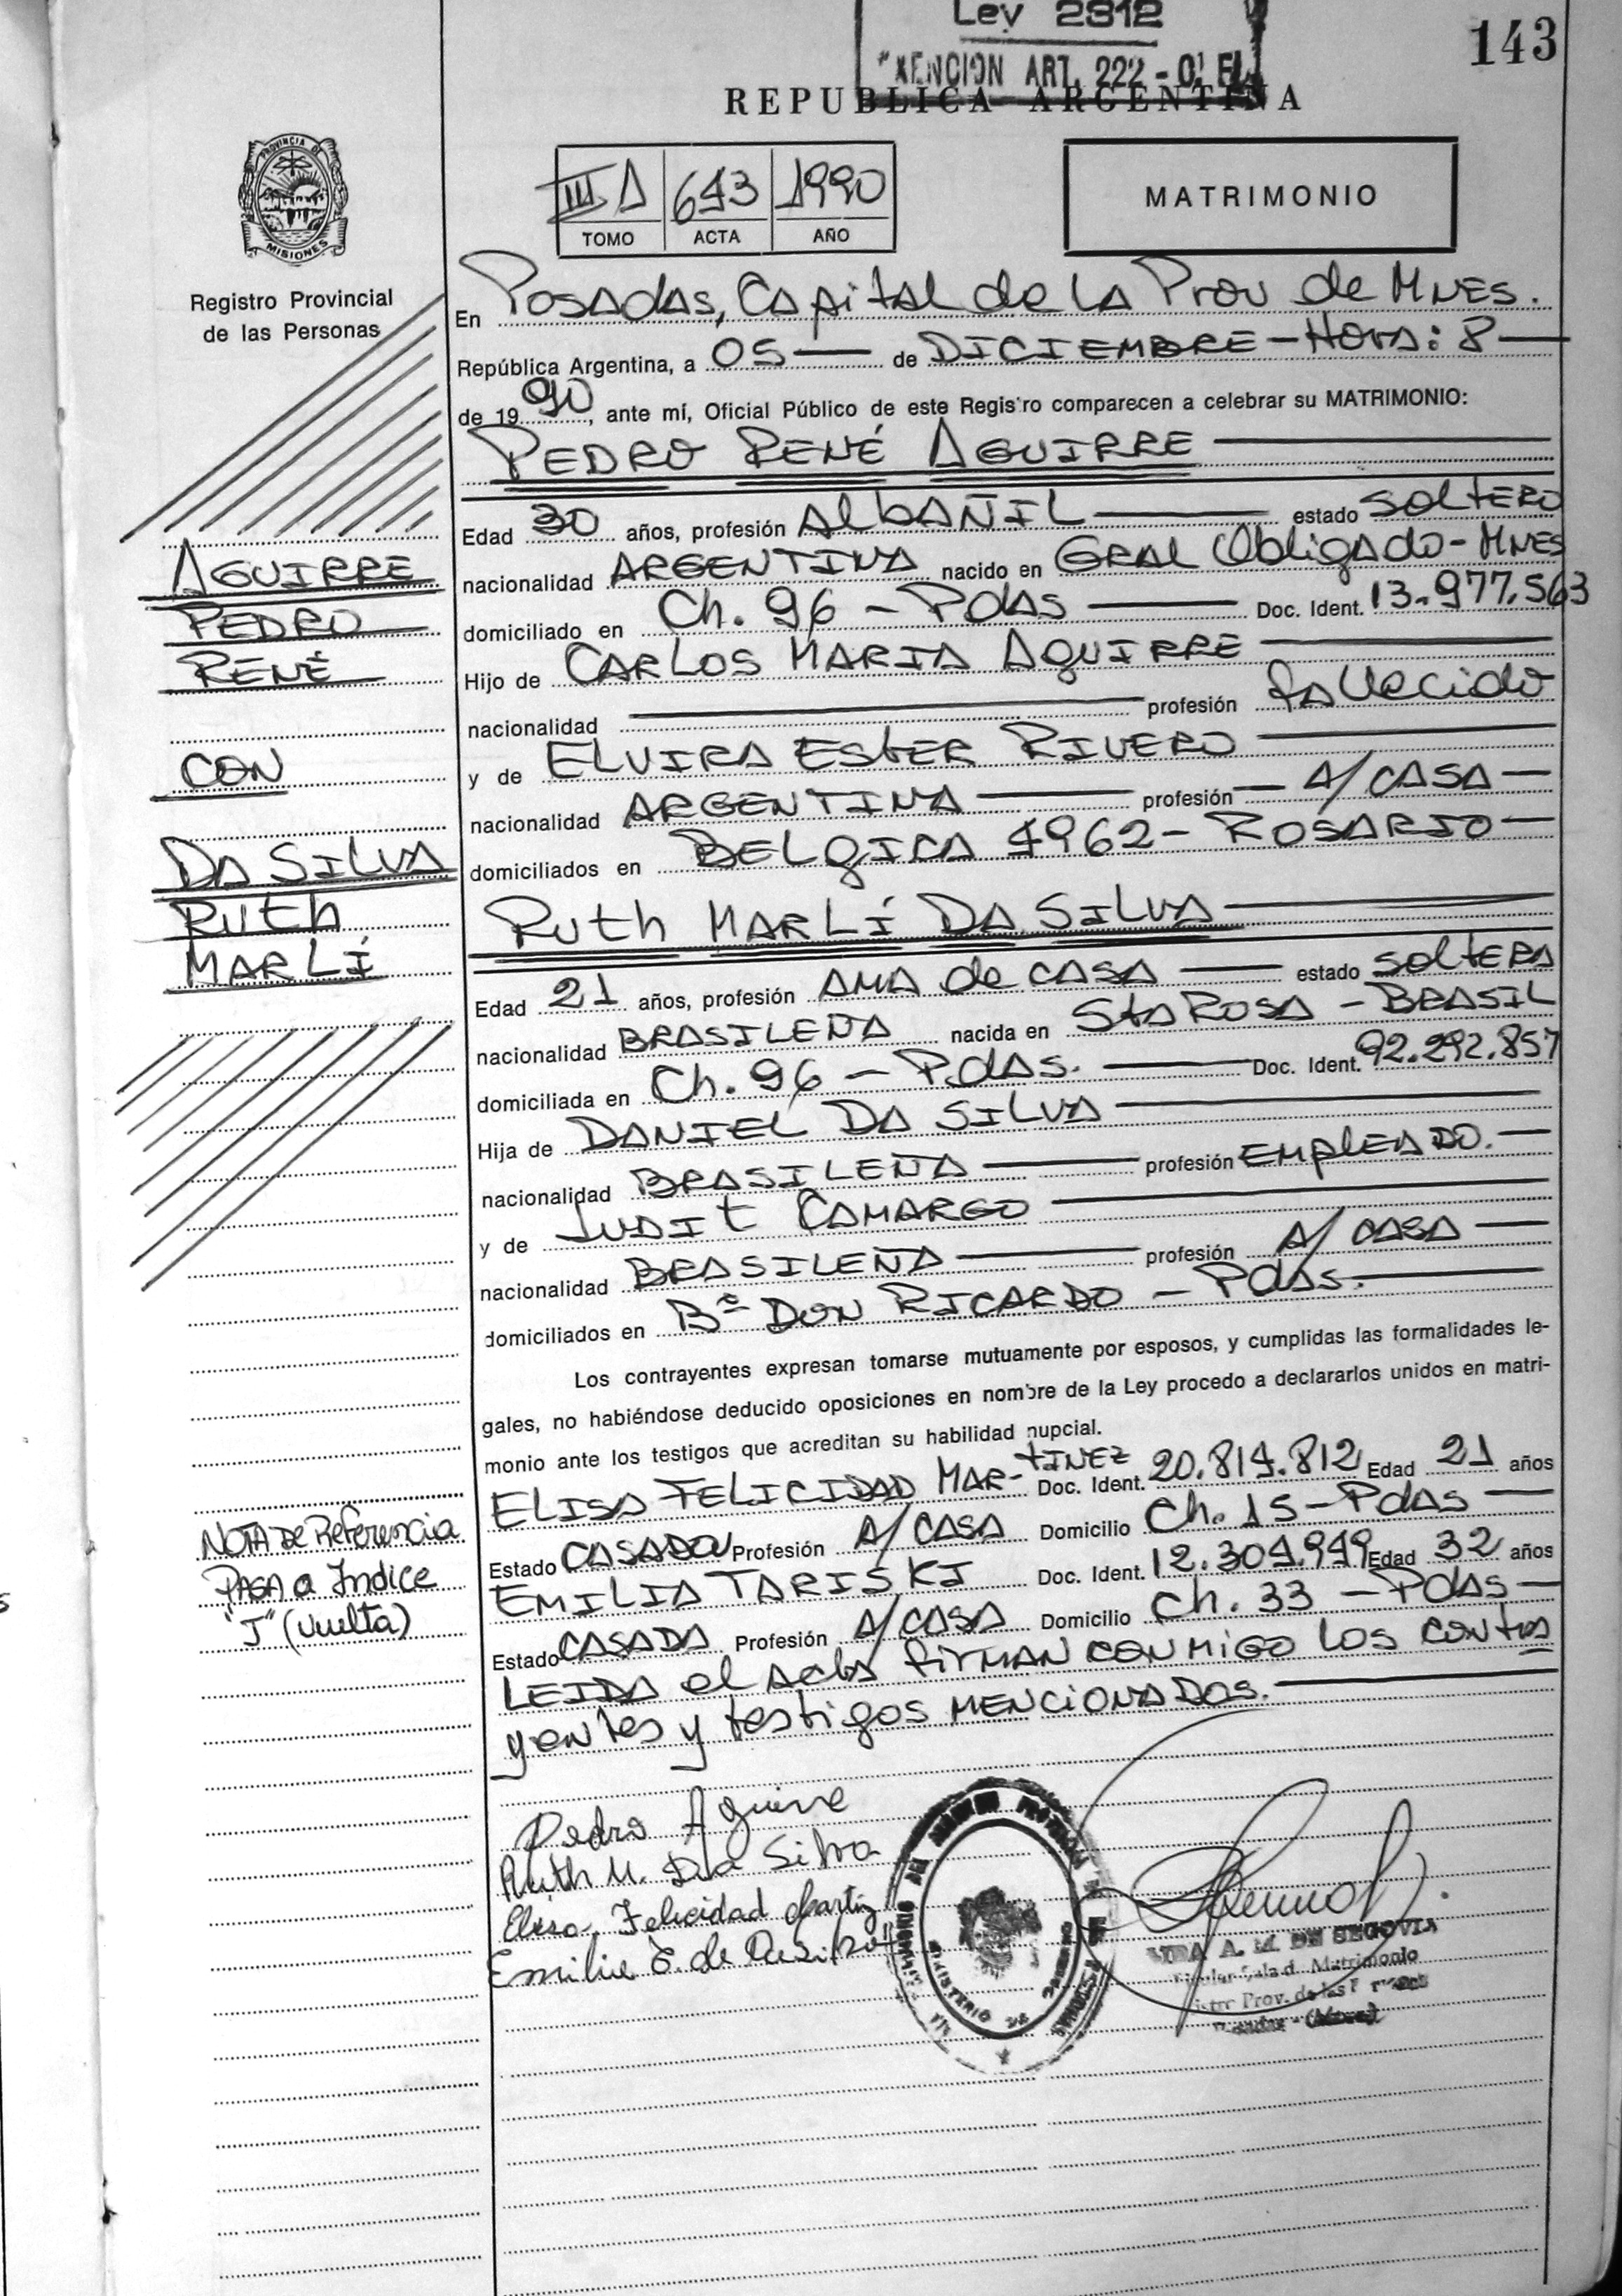 Ley 2312
ART. 222 -
143
REPUBLICA ARGENTINA
PROVINCIA DE
MISIONES
III A 643 1990
TOMO ACTA AÑO
MATRIMONIO
Registro Provincial
de las Personas
En Posadas, Capital de la Prov de Mnes.
República Argentina, a 05 — de DICIEMBRE - Hora: 8 —
de 1990, ante mí, Oficial Público de este Registro comparecen a celebrar su MATRIMONIO:
PEDRO RENÉ AGUIRRE
Edad 30 años, profesión AlbAÑIL — estado SOLTERO
nacionalidad ARGENTINA nacido en GRAL Obligado - Mnes
domiciliado en Ch. 96 - Pdas — Doc. Ident. 13.977.563
Hijo de CARLOS MARIA AGUIRRE
nacionalidad — profesión fallecido
y de ELVIRA ESTER RIVERO
nacionalidad ARGENTINA — profesión — A/CASA —
domiciliados en BELGICA 4962 - ROSARIO —
AGUIRRE
PEDRO
RENÉ
CON
DA SILVA
Ruth
MARLÍ
Ruth MARLÍ DA SILVA
Edad 21 años, profesión AMA de CASA — estado SOLTERA
nacionalidad BRASILEÑA nacida en Sta ROSA - BRASIL
domiciliada en Ch. 96 - Pdas. — Doc. Ident. 92.292.857
Hija de DANIEL DA SILVA
nacionalidad BRASILEÑA — profesión EMPLEADO. —
y de JUDIT CAMARGO
nacionalidad BRASILEÑA — profesión A/CASA —
domiciliados en Bº DON RICARDO - Pdas. —
Los contrayentes expresan tomarse mutuamente por esposos, y cumplidas las formalidades le-
gales, no habiéndose deducido oposiciones en nombre de la Ley procedo a declararlos unidos en matri-
monio ante los testigos que acreditan su habilidad nupcial.
ELISA FELICIDAD MAR-TINEZ Doc. Ident. 20.814.812 Edad 21 años
Estado CASADA Profesión A/CASA Domicilio Ch. 15 - Pdas —
EMILIA TARISKI Doc. Ident. 12.304.949 Edad 32 años
Estado CASADA Profesión A/CASA Domicilio Ch. 33 - Pdas —
LEIDA el Acta firman conmigo los contra
yentes y testigos MENCIONADOS. —
NOTA De Referencia
PASA a Indice
"J" (vuelta)
Pedro Aguirre
Ruth M. Da Silva
Elisa Felicidad Martinez
Emilia
MINISTERIO DE
A. M. DE SEGOVIA
Matrimonio
Prov. de las